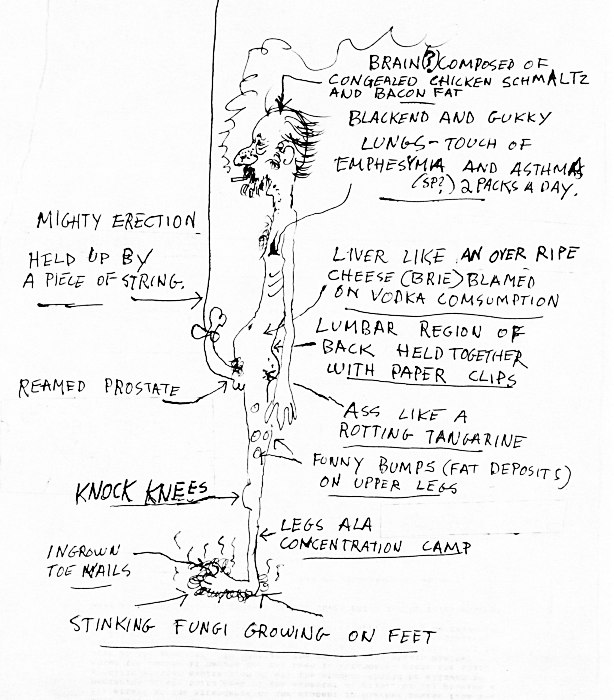 BRAIN(?) COMPOSED OF
CONGEALED CHICKEN SCHMALTZ
AND BACON FAT
BLACKEND AND GUKKY
LUNGS - TOUCH OF
EMPHESYMIA AND ASTHMA
(SP?) 2 PACKS A DAY.
MIGHTY ERECTION
HELD UP BY
A PIECE OF STRING.
LIVER LIKE AN OVER RIPE
CHEESE (BRIE) BLAMED
ON VODKA COMSUMPTION
LUMBAR REGION OF
BACK HELD TOGETHER
WITH PAPER CLIPS
REAMED PROSTATE
ASS LIKE A
ROTTING TANGARINE
FUNNY BUMPS (FAT DEPOSITS)
ON UPPER LEGS
KNOCK KNEES
LEGS ALA
CONCENTRATION CAMP
INGROWN
TOE NAILS
STINKING FUNGI GROWING ON FEET